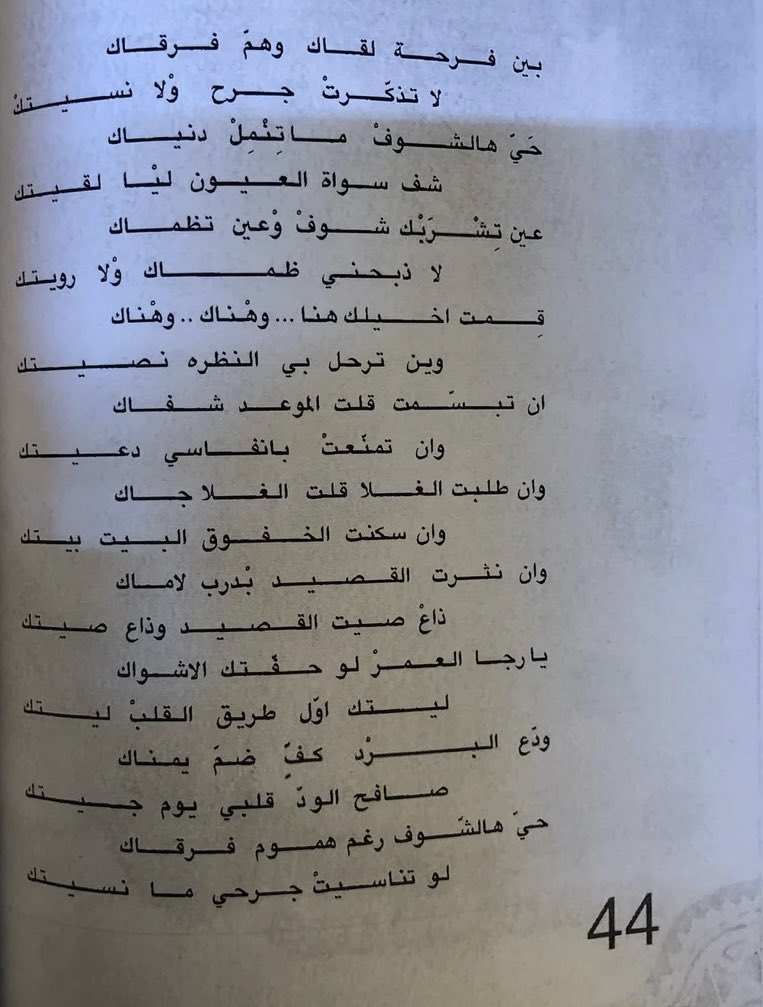 بين فرحة لقاك وهمّ فرقاك
لا تذكّرتْ جرح وْلا نسيتكْ
حَيّ هالشوفْ ماتِنْمِلْ دنياك
شف سواة العيون ليْا لقيتك
عين تِشْرَبْك شوفْ وْعين تظماك
لا ذبحني ظماك وْلا رويتك
قِمت اخيلك هنا ... وهْناك .. وهْناك
وين ترحل بي النظره نصيتك
ان تبسّمت قلت الموعد شفاك
وان تمنّعتْ بانفاسي دعيتك
وان طلبت الغلا قلت الغلا جاك
وان سكنت الخفوق البيت بيتك
وان نثرت القصيد بْدرب لاماك
ذاعْ صيت القصيد وذاع صيتك
يارجا العمرْ لو حفّتك الاشواك
ليتك اوّل طريق القلبْ ليتك
ودّع البرْد كفٍّ ضمّ يمناك
صافح الودّ قلبي يوم جيتك
حيّ هالشّوف رغم هموم فرقاك
لو تناسيتْ جرحي ما نسيتك
44